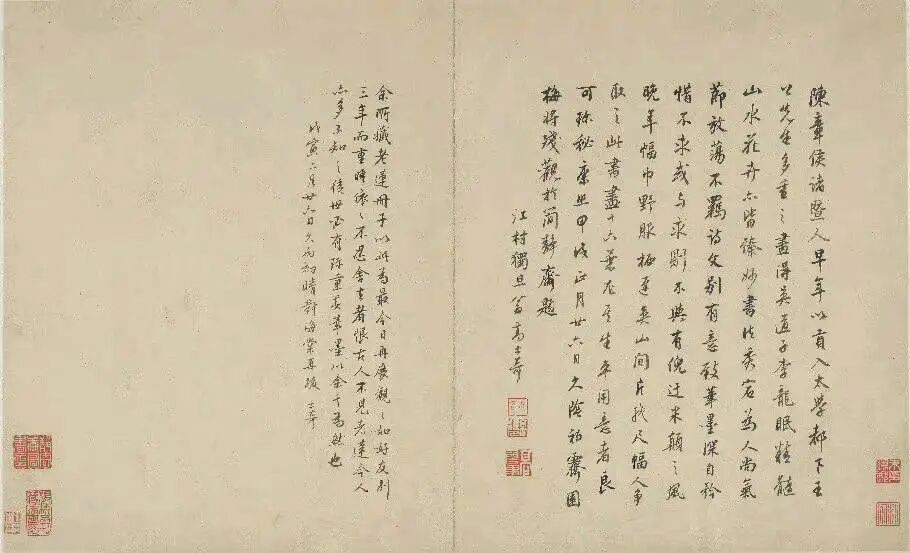 陳章侯諸暨人早年以貢入太學都下王
公先生多重之畫得吳道子李龍眠精髓
山水花卉亦皆臻妙書法秀宕為人尚氣
節放蕩不羈詩文別有意致筆墨深自矜
惜不求或与求剧不與有倪迂米顛之風
晚年幅巾野服栖遲吳山間片紙尺幅人爭
取之此書畫十六葉尤其生平用意者良
可珍秘康熙甲戌正月廿六日久陰初霽園
梅將殘觀於簡靜齋題
江村獨旦翁高士奇
余所藏老蓮冊子以此為最今日再展觀之如好友別
三年而重晤依々不忍舍去者恨古人不見老蓮今人
亦多不知之後世必有珍重其筆墨以余言為然也
戊寅六月廿六日久雨初晴對海棠再跋 士奇